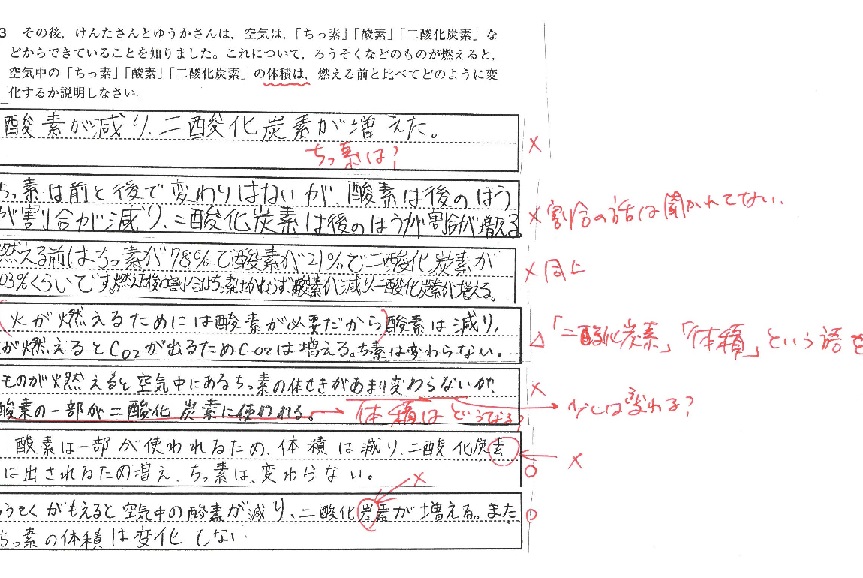 3 その後，けんたさんとゆうかさんは，空気は，「ちっ素」「酸素」「二酸化炭素」な
どからできていることを知りました。これについて，ろうそくなどのものが燃えると，
空気中の「ちっ素」「酸素」「二酸化炭素」の体積は，燃える前と比べてどのように変
化するか説明しなさい。
酸素が減り、二酸化炭素が増えた。
ちっ素は？
×
ちっ素は前と後で変わりはないが、酸素は後のほう
が割合が減り、二酸化炭素は後のほうが割合が増える
× 割合の話は聞かれてない、
燃える前は、ちっ素が78％で酸素が21％で二酸化炭素が
03％くらいです。
酸素が減り二酸化炭素が増える。
× 同上
火が燃えるためには酸素が必要だから酸素は減り、
が燃えるとCO2が出るためCO2は増える。ちっ素は変わらない。
△「二酸化炭素」「体積」という語を
ものが燃えると空気中にあるちっ素の体せきがあまり変わらないが、
酸素の一部が二酸化炭素に使われる。
体積はどうなる？
×
少しは変わる？
酸素は一部が使われるため、体積は減り、二酸化炭
は出されるため増え、ちっ素は、変わらない。
○
×
うそくがもえると空気中の酸素が減り、二酸化炭素が増える。また
ちっ素の体積は変化しない
×
○